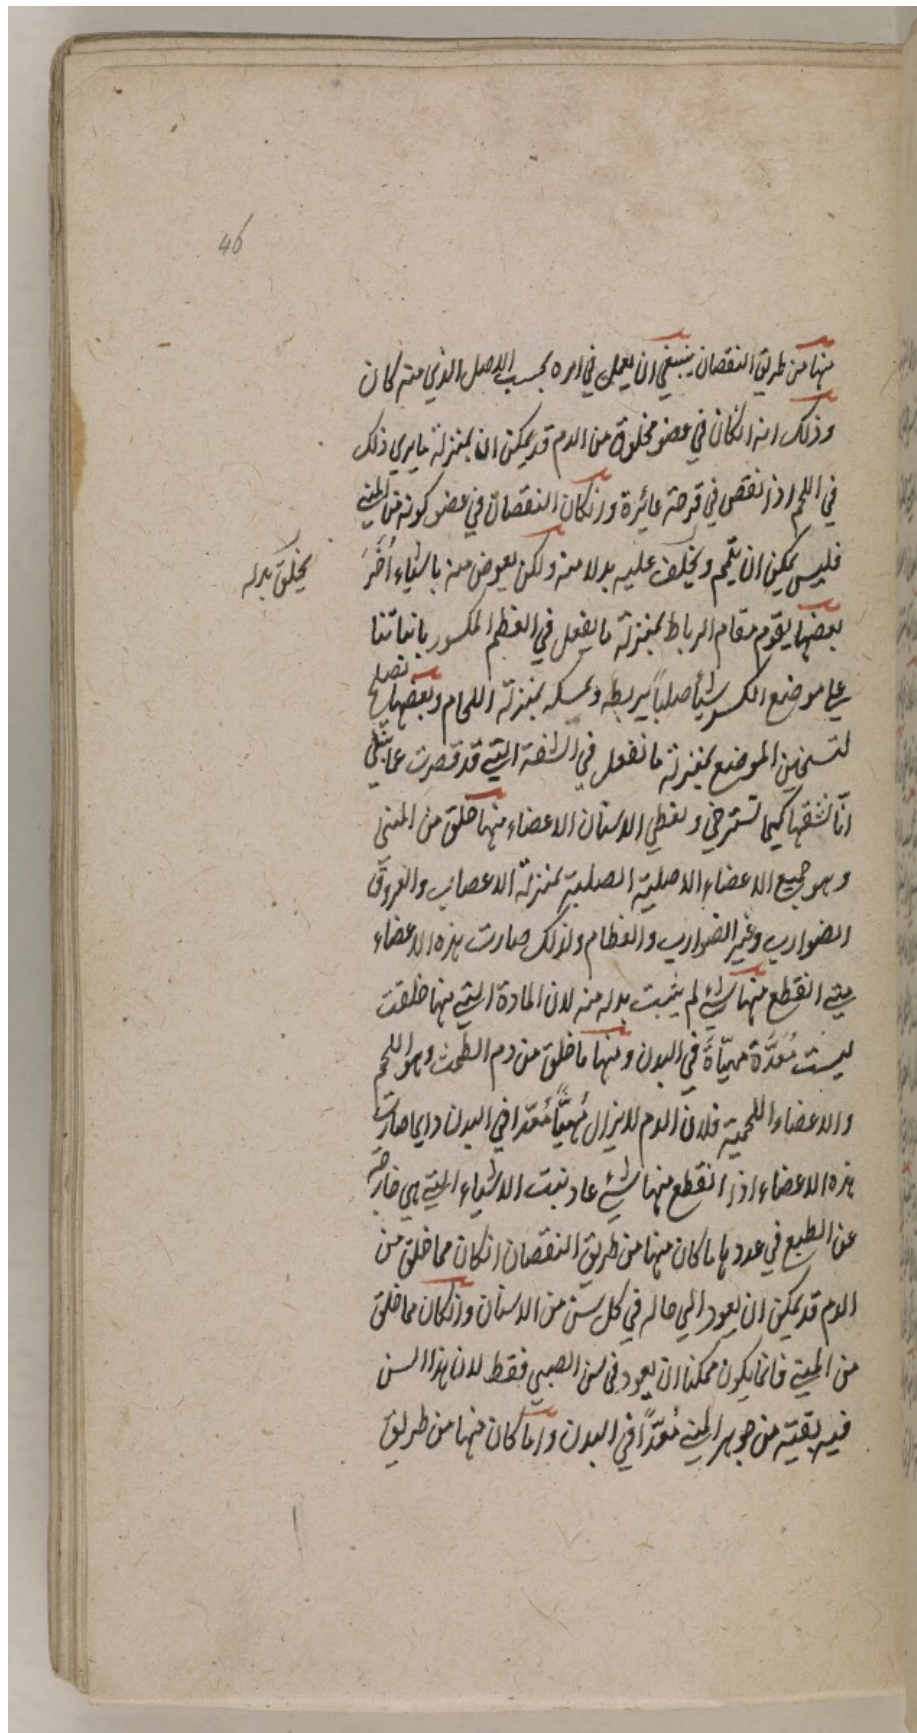 46
منها من طريق النقصان ينبغي ان يعمل في امره بحسب الاصل الذي منه كان
وذلك انه انكان في عضو مخلوق من الدم قد يمكن ان بمنزلة ما يرى ذلك
في اللحم اذا نقص في قرحة غائرة وانكان النقصان في عضو كونه من المني
فليس يمكن ان يلتحم ويخلف عليه بدلا منه ولكن يعوض منه باشياء اُخَرَ
يخلف بدله
بعضها يقوم مقام الرباط بمنزلة ما يفعل في العظم المكسور بانباتنا
على موضع الكسر شيأ صلباً يربطه ويمسكه بمنزلة اللحام وبعضها تصلح
لتسخين الموضع بمنزلة ما نفعل في الشفة التي قد قصرت
انّا نشقها كيما تسترخي وتغطي الاسنان الاعضاء منها خلق من المني
وهو جميع الاعضاء الاصلية الصلبة بمنزلة الاعصاب والعروق
الضوارب وغير الضوارب والعظام ولذلك صارت هذه الاعضاء
متى انقطع منها شئ لم ينبت بدله منه لان المادة التي منها خلقت
ليست مُعَدَّة مهيّأة في البدن ومنها ما خلق من دم الطمث وهو اللحم
والاعضاء اللحمية فلان الدم لا يزال مُهيّأً مُعَدّا في البدن دايما صارت
هذه الاعضاء اذا انقطع منها شئ عاد نبت الاشياء التي هي خارجة
عن الطبع في عددها ما كان منها من طريق النقصان انكان مما خلق من
الدم قد يمكن ان يعود الى حاله في كل سن من الاسنان وانكان مما خلق
من المني فانما يكون ممكنا ان يعود في سن الصبي فقط لان هذا السن
فيه بقية من جوهر المني مُعَدّاً في البدن واما كان منها من طريق